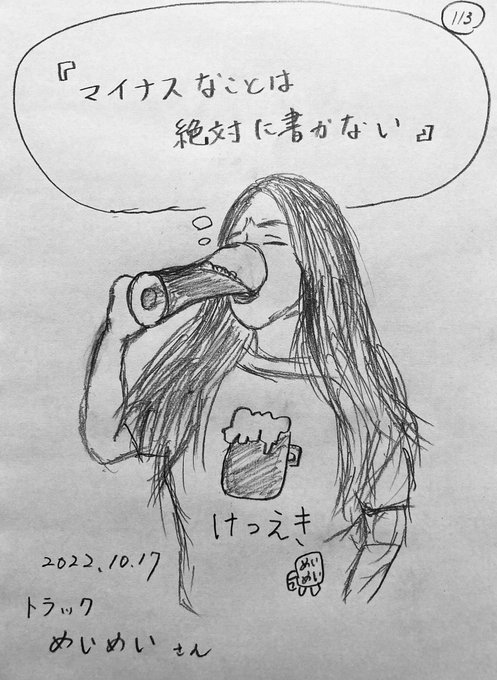 113
『マイナスなことは
絶対に書かない』
けつえき
めい
めい
2022.10.17
トラック
めいめい さん